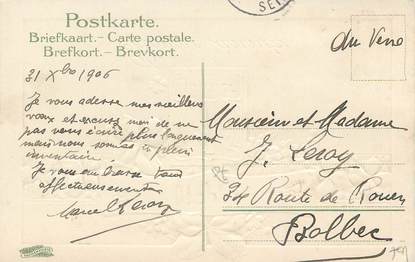 Postkarte.
Briefkaart.- Carte postale.
Brefkort.- Brevkort.
SEI
31 Xbre 1906
Je vous adresse mes meilleurs
vœux et excusez moi de ne
pas vous écrire plus longuement
mais nous sommes en plein
inventaire.
Je vous embrasse tous
affectueusement
Marcel Leroy
Monsieur et Madame
J. Leroy
34 Route de Rouen
Bolbec